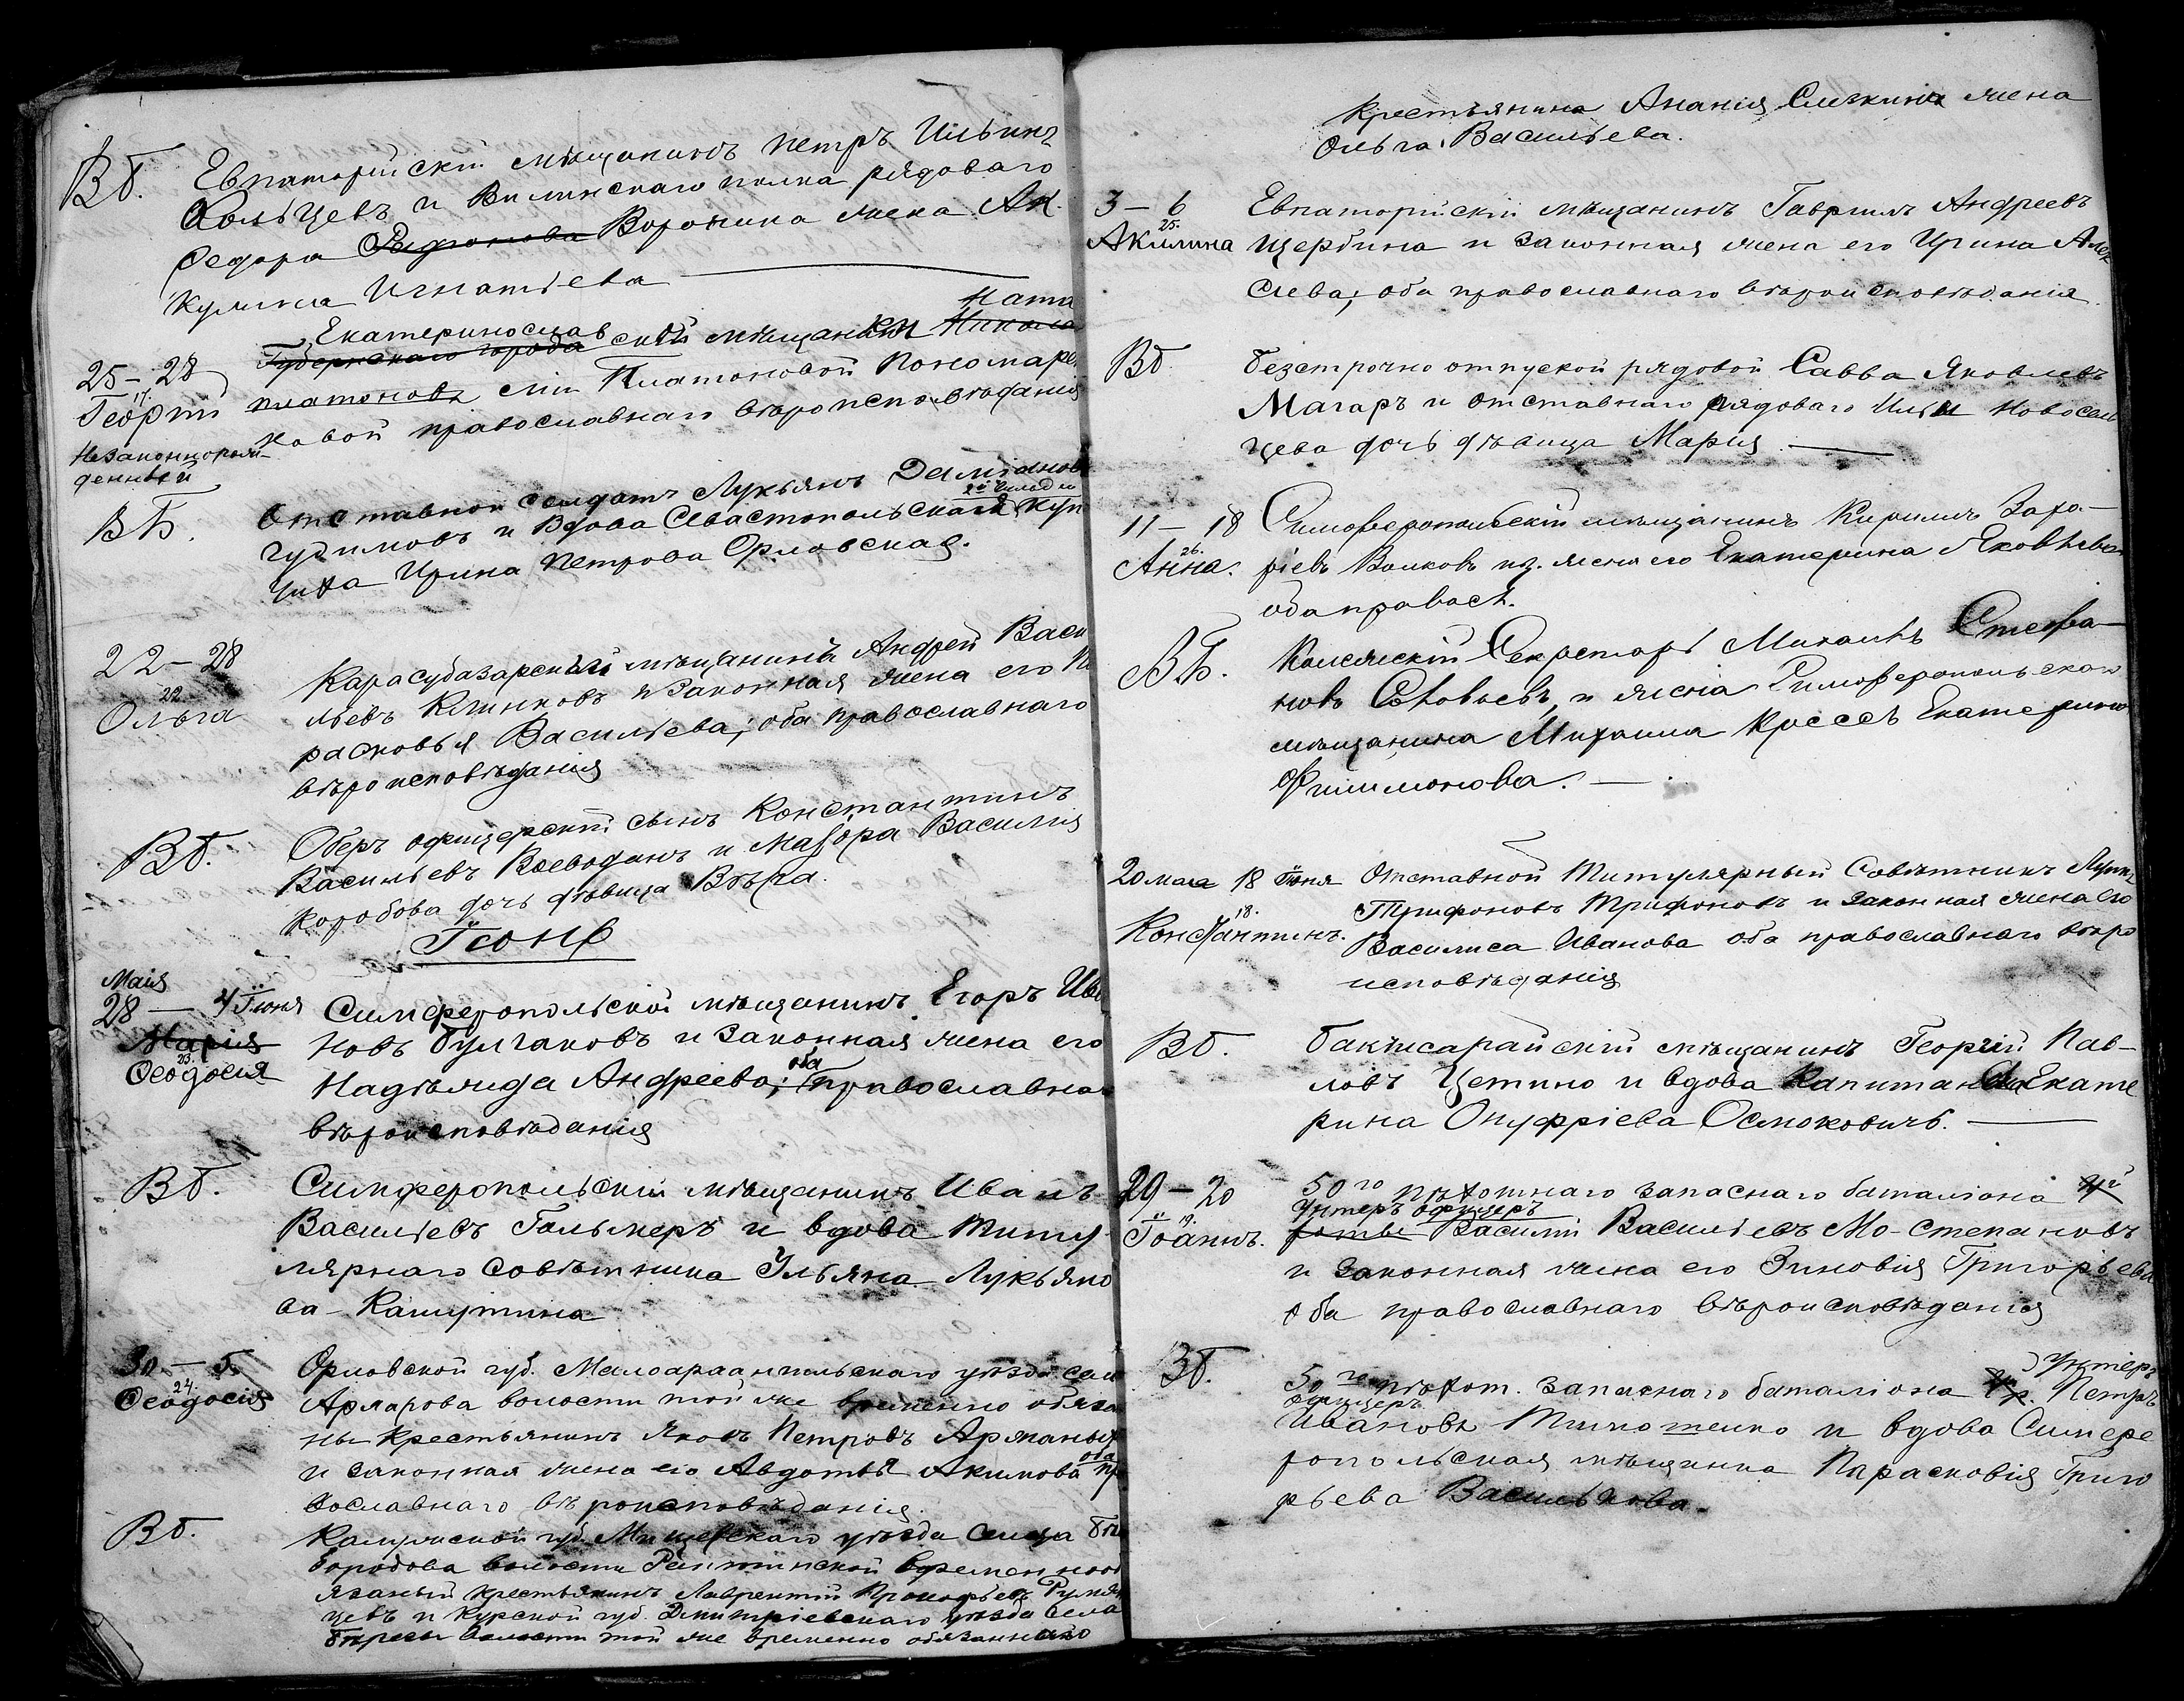 ВБ. Евпаторійскій мѣщанинъ Петръ Ильинъ
Кольцевъ и Виленскаго полка рядоваго
Федора Воронина жена Ак-
кулина Игнатьева
Екатеринослав Ната
Губернскаго города ской мѣщанки Никола
25 – 28
17.
Георгій Платоновъ ліи Платоновой Пономарен
ковой православнаго вѣроисповѣданія
Незаконнорож-
денный
ВБ. Отставной солдатъ Лукьянъ Даміановъ
2й гильдіи
Гудимовъ и Вдова Севастопольская Куп
чиха Ирина Петрова Орловская.
22 – 28
22
Ольга
Карасубазарскій мѣщанинъ Андрей Васи
льевъ Клинковъ и Законная жена его Па
расковья Васильева; оба православнаго
вѣроисповѣданія
ВБ. Оберъ офицерскій сынъ Константинъ
Васильевъ Воеводанъ и Маіора Василія
Коробова дочь дѣвица Вѣра.
Іюнь
Маія
28 — 4 Іюня Симферопольской мѣщанинъ Егоръ Ива
Марія новъ Булгаковъ и Законная жена его
23.
Ѳеодосія Надѣжда Андреева; оба православна
вѣроисповѣданія
ВБ. Симферопольскій мѣщанинъ Иванъ
Васильевъ Гольмеръ и вдова Титу
лярнаго Совѣтника Ульяна Лукьяно
ва Кашутина
30 – 5 Орловской губ. Малоархангельскаго уѣзда сел
24.
Ѳеодосія волости той же временно обяза
ны крестьянинъ Яковъ Петровъ
и законная жена его Авдотья Акимова оба пр
вославнаго вѣроисповѣданія.
ВБ. Калужской губ. Мещевскаго уѣзда Сельца
бородова волости временнооб
язаный крестьянинъ Лаврентій Прокофьевъ Румян
цевъ и Курской губ. Дмитріевскаго уѣзда села
волости той же временно обязаннаго
Крестьянина Ананія Слезкина жена
Ольга Васильева.
3 – 6 Евпаторійскій мѣщанинъ Гаврилъ Андреевъ
25.
Акилина Щербина и Законная жена его Ирина Алек
сѣева; оба православнаго вѣроисповѣданія.
ВБ Безсрочно отпускной рядовой Савва Яковлевъ
Магаръ и отставнаго рядоваго Ильи Новосель
цева дочь дѣвица Марія
11 – 18 Симферопольскій мѣщанинъ Кирилъ Заха-
26.
Анна. ріевъ Волковъ и з. жена его Екатерина Яковлева
оба правосл.
ВБ. Колежскій Секретарь Михаилъ Степа-
новъ Соловьевъ, и жена Симферопольскаго
мѣщанина Михаила Кроссъ Екатерина
Филимонова.
20 мая 18 Іюня Отставной Титулярный Совѣтникъ Лука
18.
Константинъ. Трифоновъ Трифоновъ и Законная жена его
Василиса Иванова оба православнаго вѣро
исповѣданія
ВБ. Бакчисарайскій мѣщанинъ Георгій Пав-
ловъ Цетино и вдова Капитана Екате
рина Онуфріева Осмоковичъ.
29 – 20 50го пѣхотнаго запаснаго баталіона
Унтеръ офицеръ
19.
Іоаннъ. Василій Васильевъ Мо-Степановъ
и Законная жена его Зиновія Григорьева
оба православнаго вѣроисповѣданія
ВБ. Унтеръ
50го пѣхот. запаснаго баталіона Петръ
офицеръ
Ивановъ Тимошенко и вдова Симфе
ропольская мѣщанка Парасковія Григо
рьева Василькова.